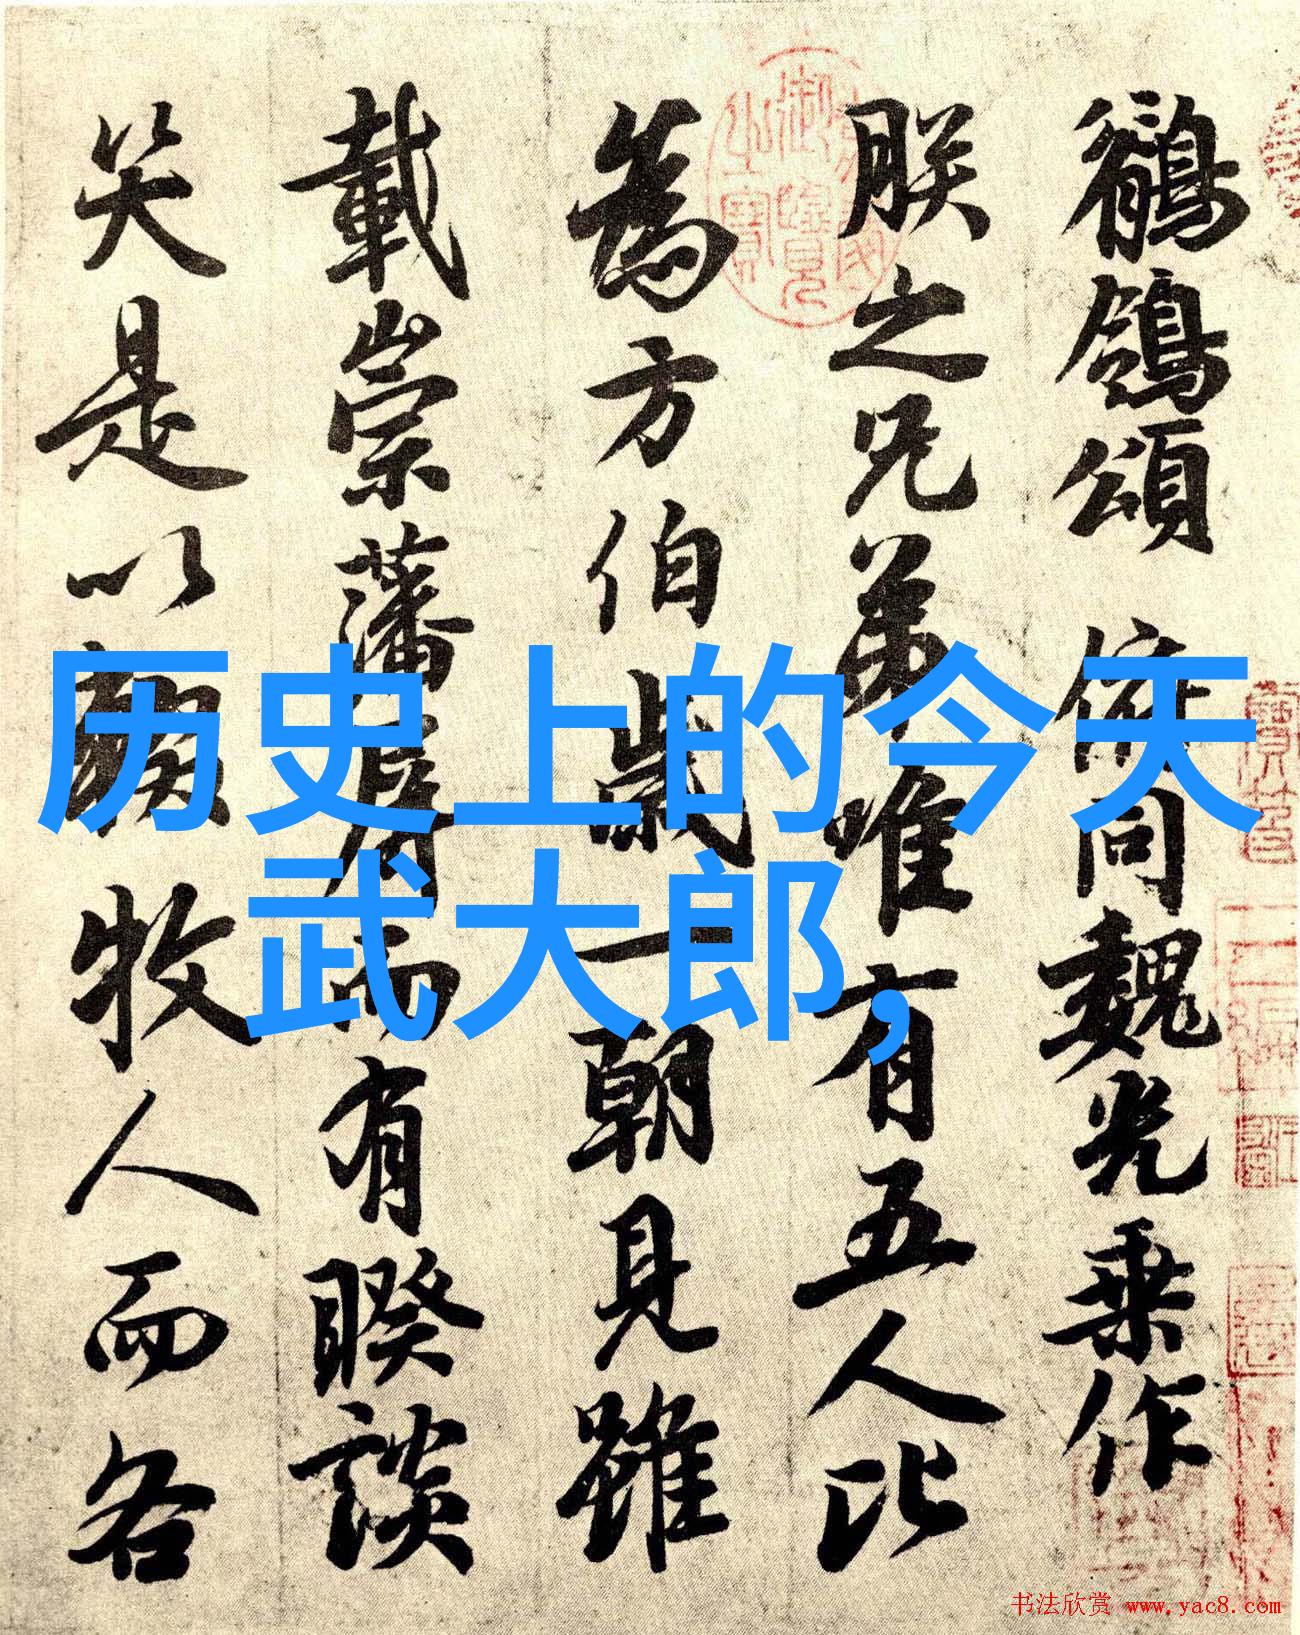 鶺鴒頌 俯同魏光乘作
朕之兄弟唯有五人比
為方伯歲一朝見雖
載崇藩屏而有睽談
笑是以輟牧人而各
历史上的今天
武大郎,
书法欣赏 www.yac8.com